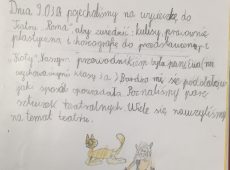 Dnia 9.03.18 pojechaliśmy na wycieczkę do
Teatru "Roma", aby zwiedzić: kulisy, pracownie
plastyczną i scenografię do przedstawienia
"Koty". Naszym przewodnikiem była pani Ewa (
wychowawczyni klasy 1a.) Bardzo mi się podobało
jaki sposób opowiadała. Poznaliśmy parę
sztuczek teatralnych. Wiele się nauczyliśmy
na temat teatru.